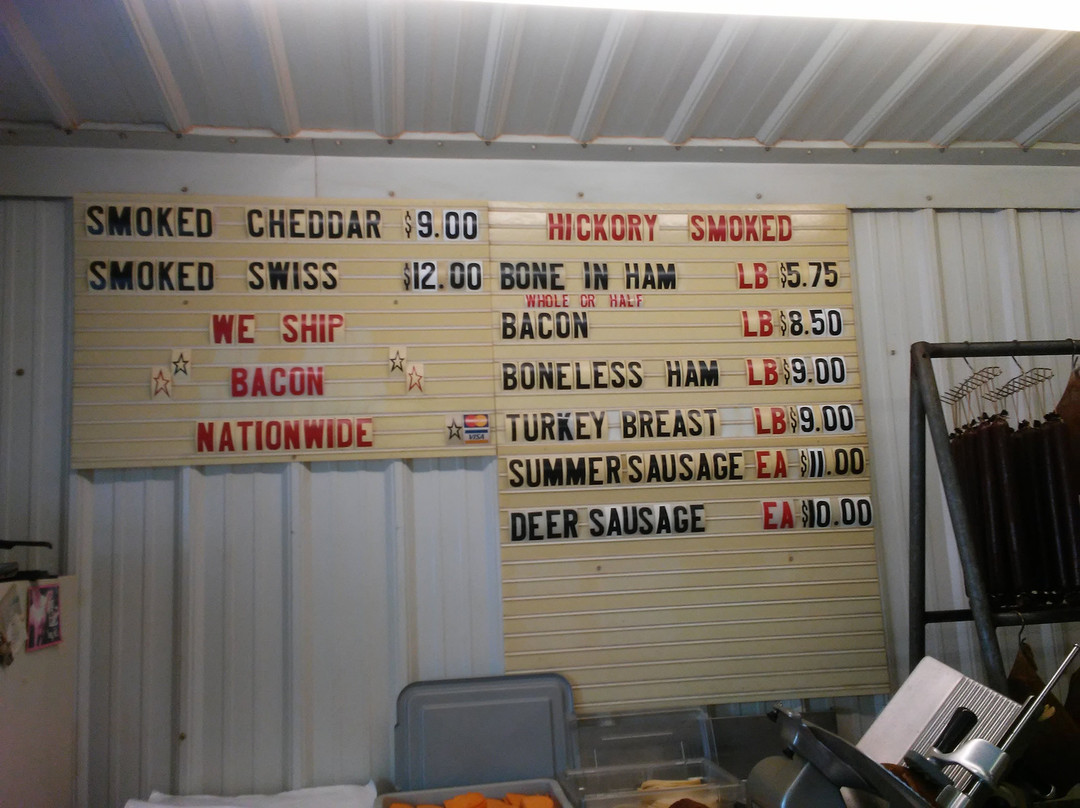 SMOKED CHEDDAR $9.00
SMOKED SWISS $12.00
WE SHIP
BACON
NATIONWIDE
MasterCard
VISA
HICKORY SMOKED
BONE IN HAM LB $5.75
WHOLE OR HALF
BACON LB $8.50
BONELESS HAM LB $9.00
TURKEY BREAST LB $9.00
SUMMER SAUSAGE EA $11.00
DEER SAUSAGE EA $10.00